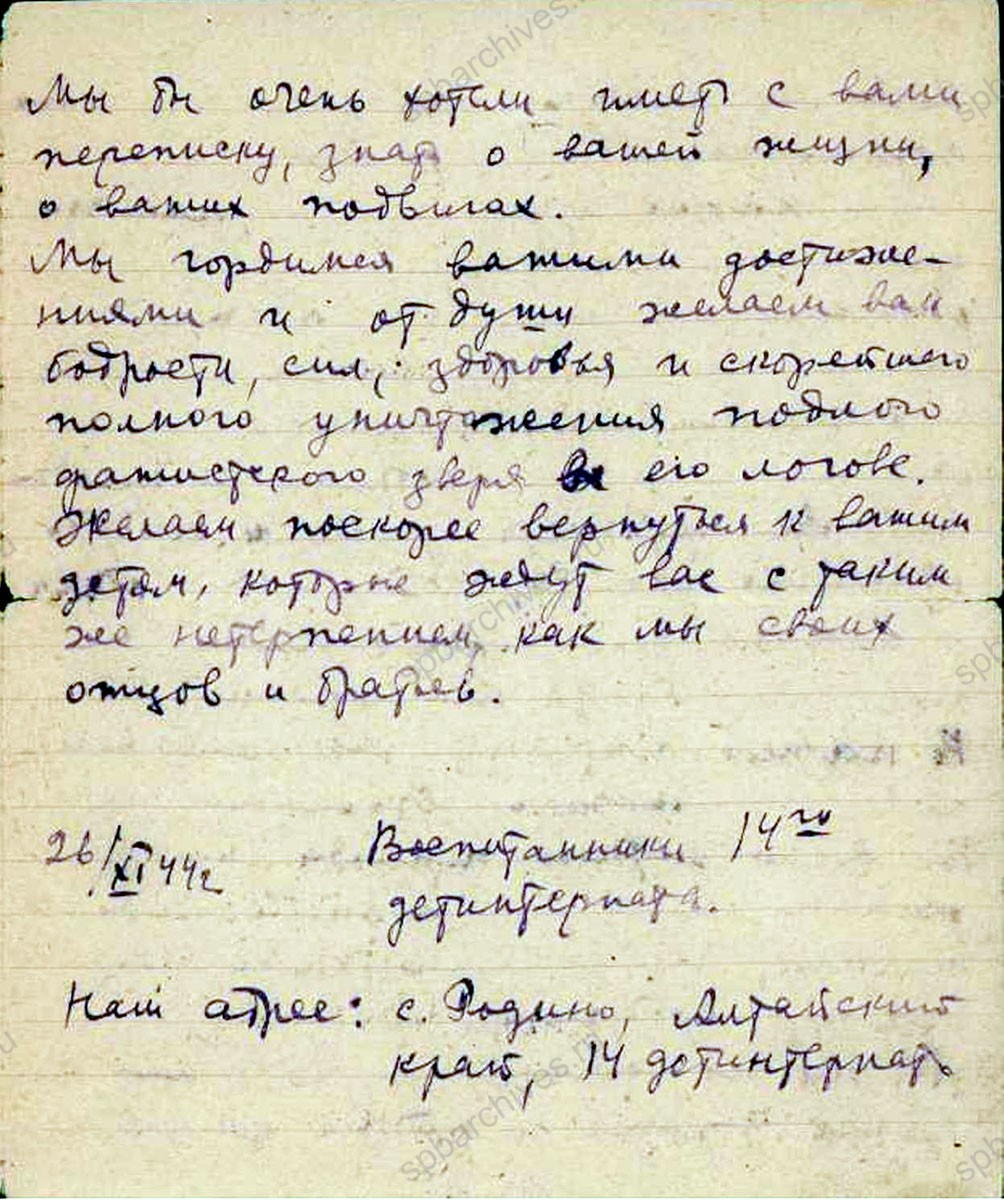 Мы бы очень хотели иметь с вами
переписку, знать о вашей жизни,
о ваших подвигах.
Мы гордимся вашими достиже-
ниями и от души желаем вам
бодрости, сил, здоровья и скорейшего
полного уничтожения подлого
фашистского зверя в его логове.
Желаем поскорее вернуться к вашим
детям, которые ждут вас с таким
же нетерпением, как мы своих
отцов и братьев.
26/XI 44г
Воспитанники 14го
детинтерната.
Наш адрес: с. Родино, Алтайский
край, 14 детинтернат.
spbarchives.ru